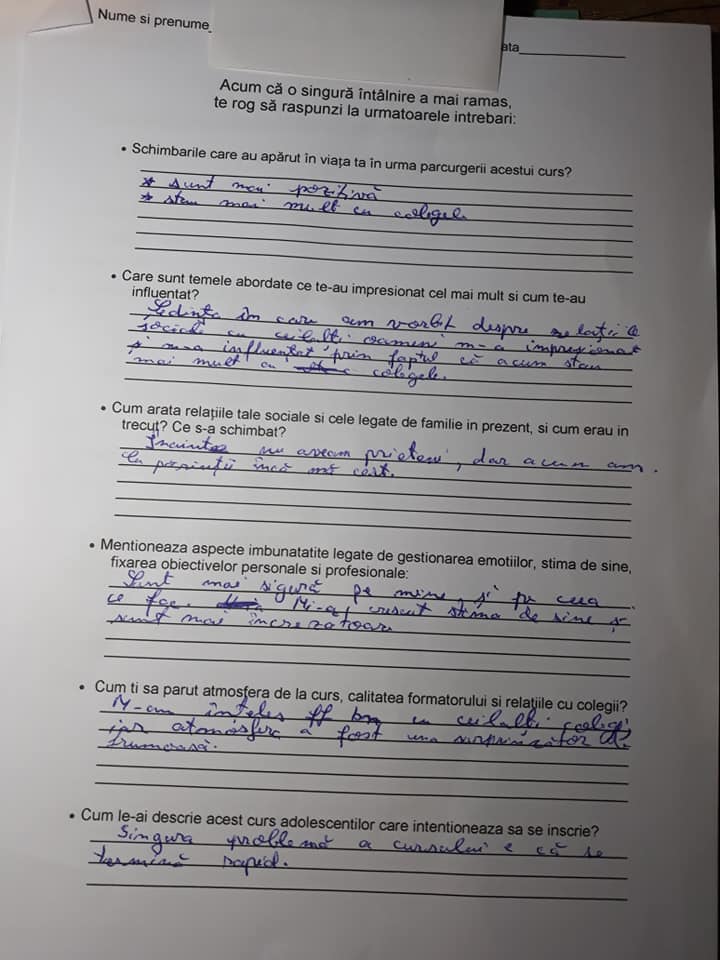 Nume si prenume_
ata_
Acum că o singură întâlnire a mai ramas,
te rog să raspunzi la urmatoarele intrebari:
• Schimbarile care au apărut în viața ta în urma parcurgerii acestui curs?
* sunt mai pozitivă
* stau mai mult cu colegele
• Care sunt temele abordate ce te-au impresionat cel mai mult si cum te-au
influentat?
Ședința în care am vorbit despre relațiile
sociale cu ceilalți oameni m-a impresionat
și m-a influențat prin faptul că acum stau
mai mult cu colegele.
• Cum arata relațiile tale sociale si cele legate de familie in prezent, si cum erau in
trecut? Ce s-a schimbat?
Înainte nu aveam prieteni, dar acum am.
Cu părinții încă mă cert.
• Mentioneaza aspecte imbunatatite legate de gestionarea emotiilor, stima de sine,
fixarea obiectivelor personale si profesionale:
Sunt mai sigură pe mine, și pe ceea
ce fac. Mi-a crescut stima de sine și
sunt mai încrezătoare
• Cum ti sa parut atmosfera de la curs, calitatea formatorului si relațiile cu colegii?
M-am înțeles ff bn cu ceilalți colegi
iar atmosfera a fost una surprinzător de
frumoasă.
• Cum le-ai descrie acest curs adolescentilor care intentioneaza sa se inscrie?
Singura problemă a cursului e că se
termină rapid.